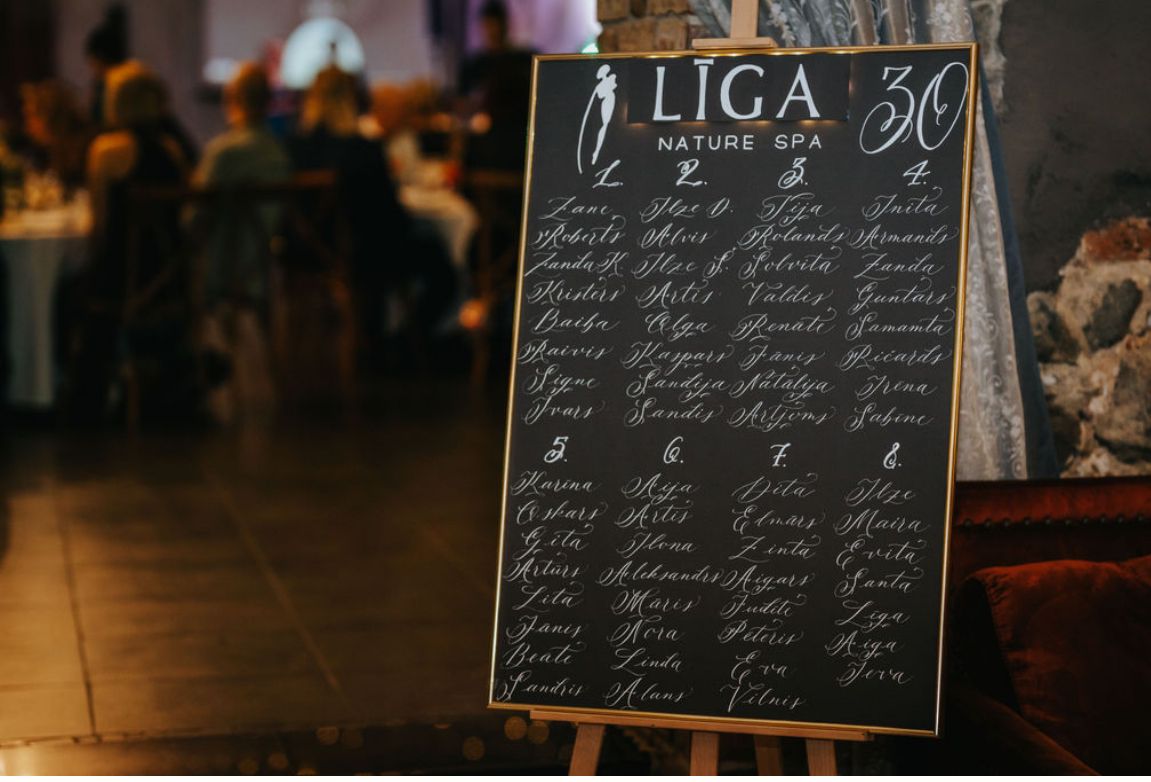 LĪGA 30
NATURE SPA
1. 2. 3. 4.
Zane Ilze D. Teja Inita
Roberts Alvis Rolands Armands
Zanda K. Ilze S. Solvita Zanda
Kristers Artis Valdis Guntars
Baiba Olga Renāte Samanta
Raivis Kaspars Jānis Ričards
Signe Sandija Natālija Irēna
Ivars Sandis Artjoms Sabīne
5. 6. 7. 8.
Karina Aija Dita Ilze
Oskars Artis Elmārs Maira
Gita Ilona Zinta Evita
Artūrs Aleksandrs Aigars Santa
Lita Māris Judīte Līga
Jānis Nora Pēteris Aiga
Beāte Linda Eva Ieva
Sandris Alans Vilnis